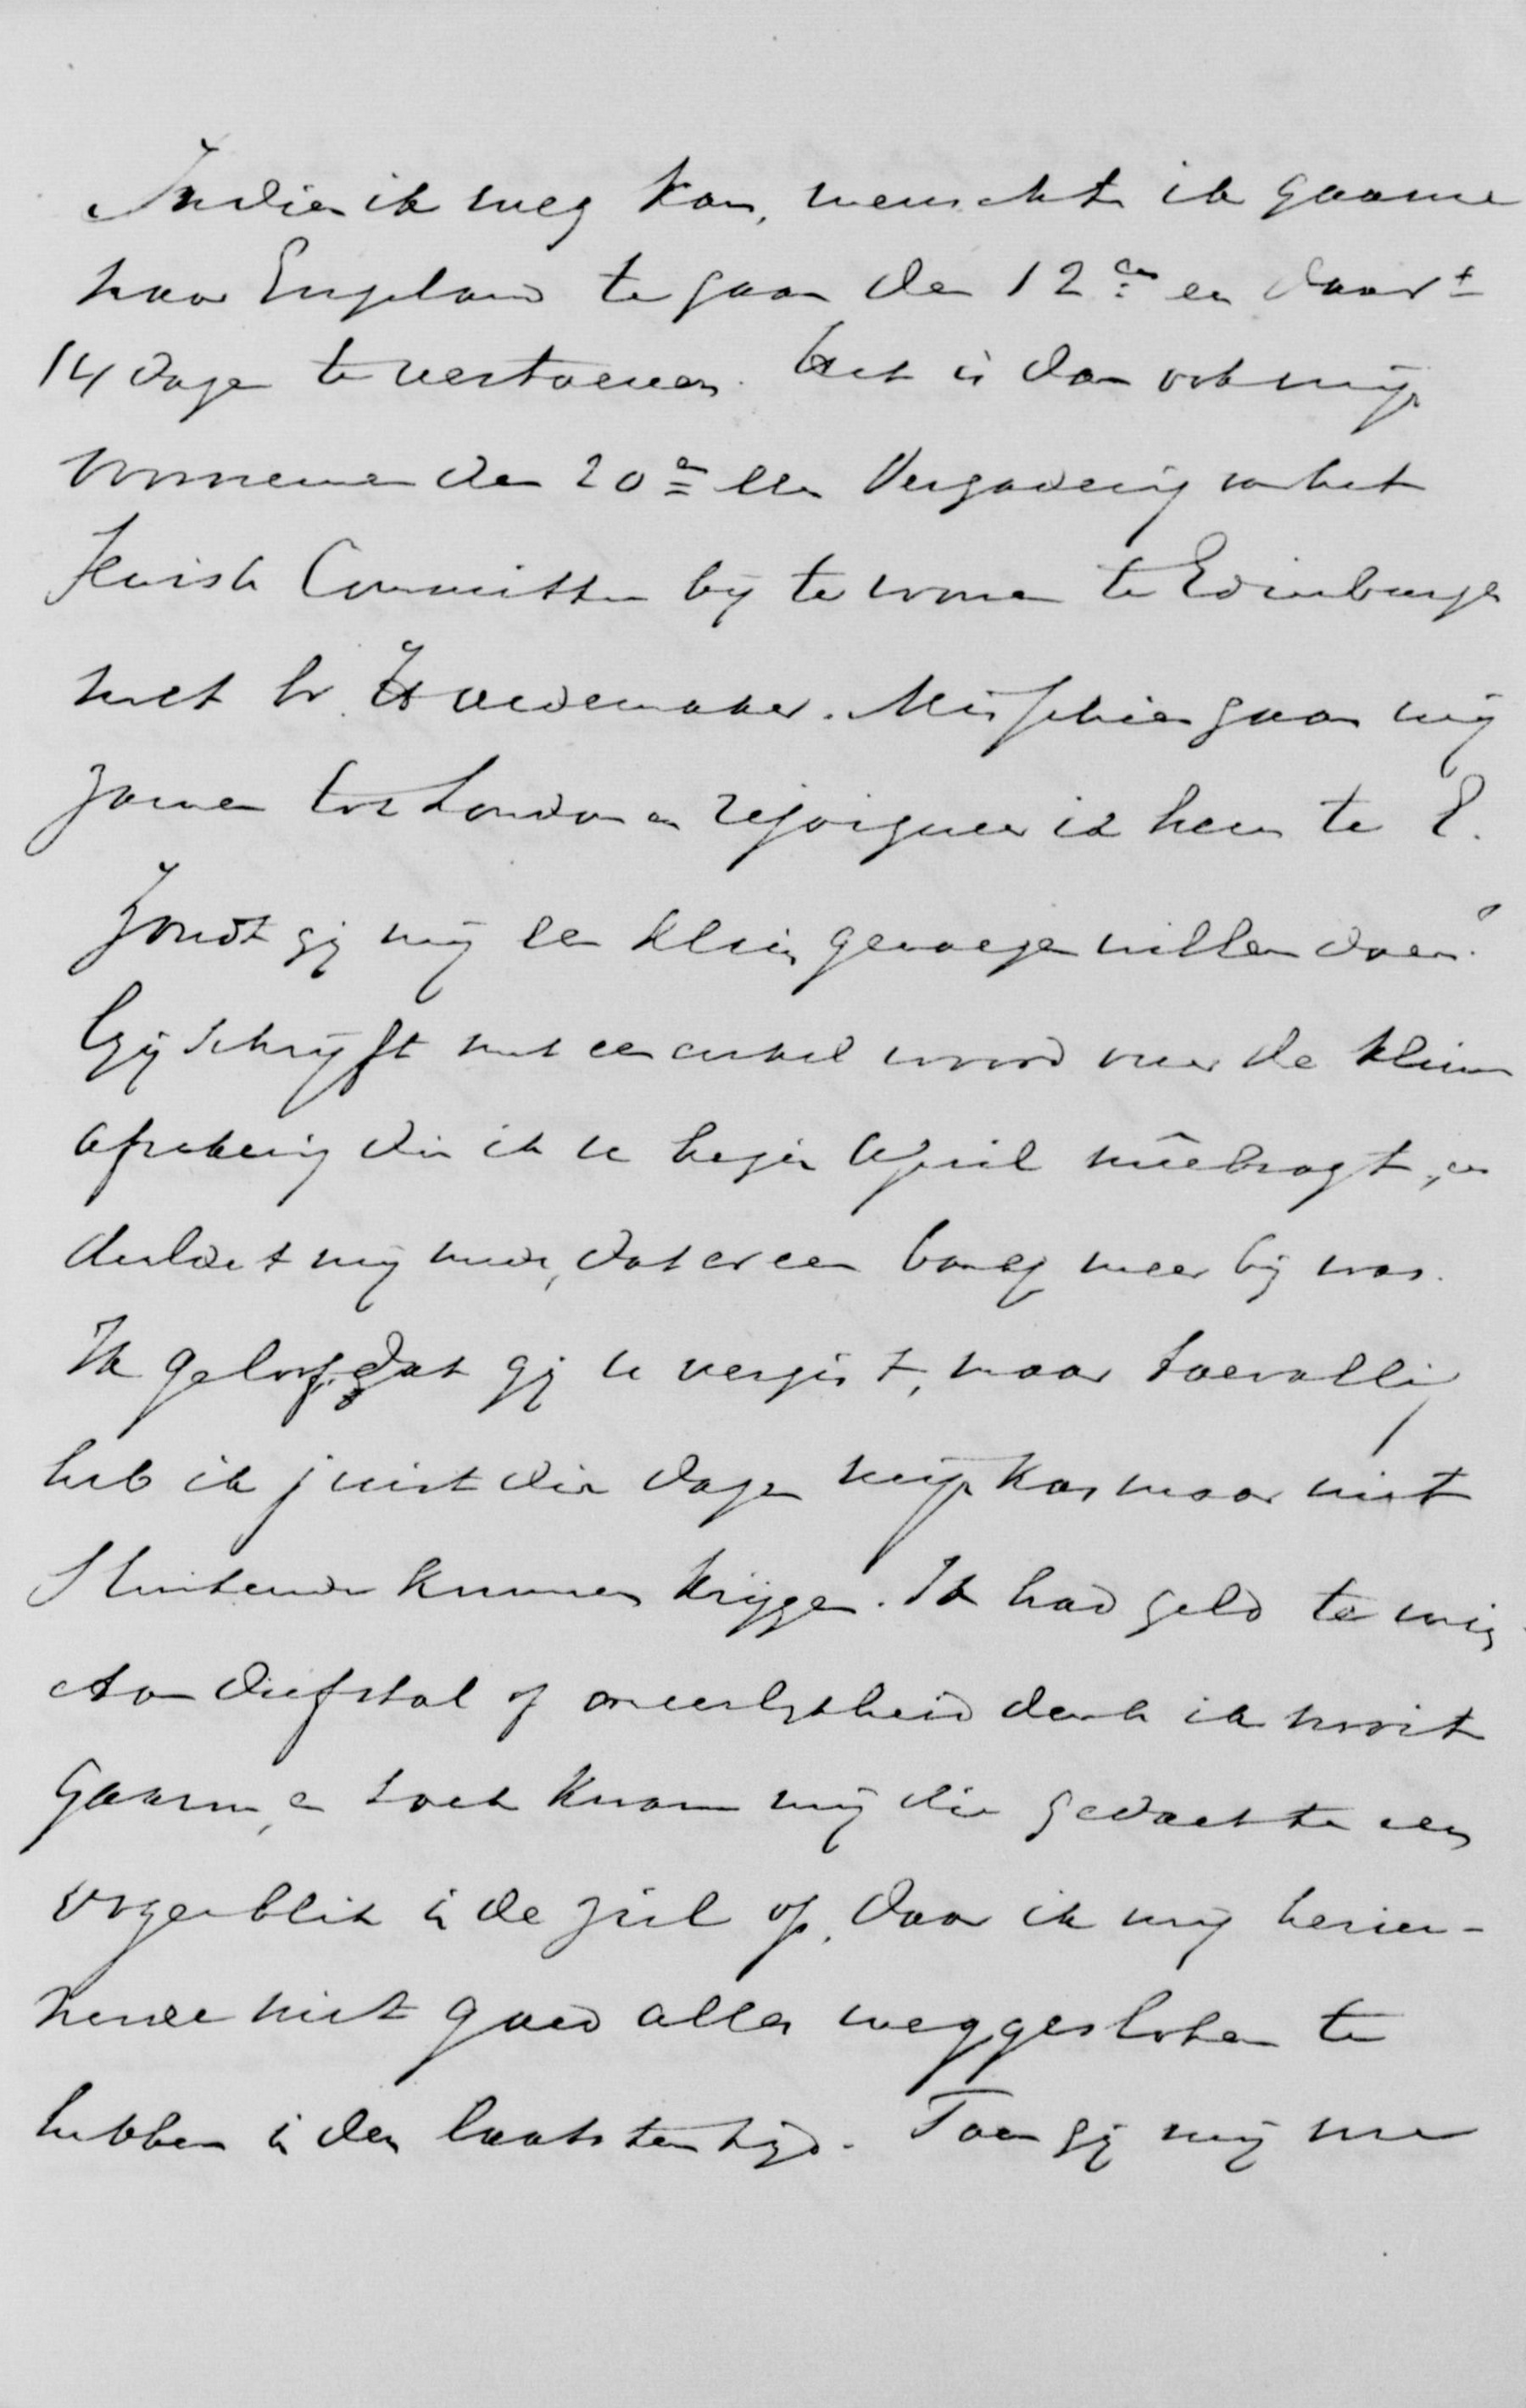 Indien ik weg kan, wenscht ik gaarne
naar Engeland te gaan den 12en en daar
14 dagen te vertoeven. Het is dan ook mijn
voornemen den 20n een Vergadering van het
Jewish Committee bij te wonen te Edinburgh
met Dr. Hoedemaker. Misschien gaan wij
zamen tot London en rejoigneer ik hem te E.
Zoudt gij mij een klein genoegen willen doen?
Gij schrijft met een enkel woord over de kleine
afrekening die ik u begin April meêbragt, en
deeldet mij mede, dat er een bankj meer bij was.
Ik geloof, dat gij u vergist, maar toevallig
heb ik juist die dagen mijn kas maar niet
sluitende kunnen krijgen. Ik had geld te winig
Aan diefstal of oneerlykheid denk ik nooit
gaarne, en toch kwam mij die gedachte een
oogenblik in de ziel op, daar ik mij herin-
nerde niet goed alles weggesloten te
hebben in den laatsten tijd. Toen gij mij nu